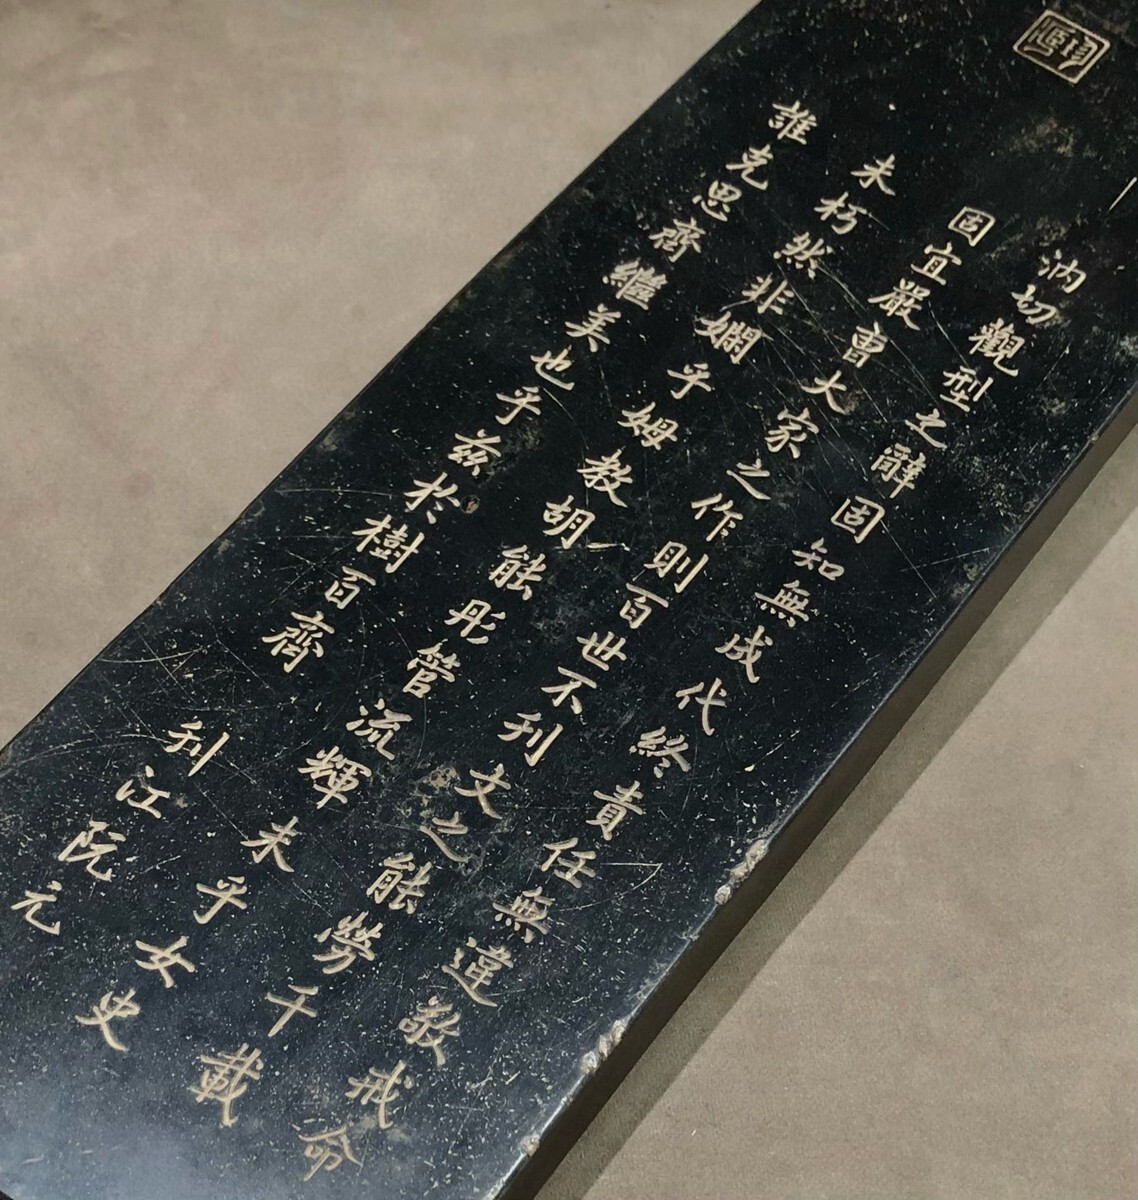 汭切觀型之辭固知無成代終責任無違敬戒命
固宜嚴曹大家之作則百世不利文之能勞千載
未朽然非嫻乎姆教胡能彤管流輝未乎女史
誰克思齊繼美也乎兹於樹百齊 利江阮元